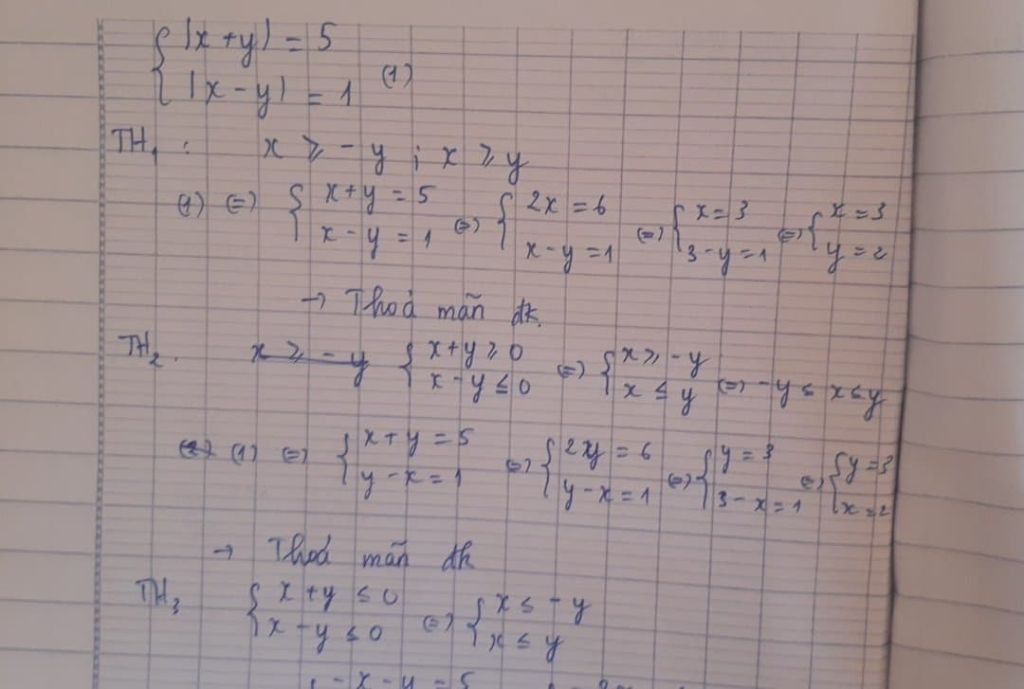 { |x+y| = 5
{ |x-y| = 1 (1)
TH1 : x ⩾ -y ; x ⩾ y
(1) (=) { x+y = 5 ; x-y = 1 (=) { 2x = 6 ; x-y = 1 (=) { x = 3 ; 3-y = 1 (=) { x = 3 ; y = 2
→ Thoả mãn đk.
TH2. x ⩾ -y { x+y ⩾ 0 ; x-y ≤ 0 (=) { x ⩾ -y ; x ≤ y (=) -y ≤ x ≤ y
(1) (=) { x+y = 5 ; y-x = 1 (=) { 2y = 6 ; y-x = 1 (=) { y = 3 ; 3-x = 1 (=) { y = 3 ; x = 2
→ Thoả mãn đk
TH3 { x+y ≤ 0 ; x-y ≤ 0 (=) { x ≤ -y ; x ≤ y
-x-y = 5